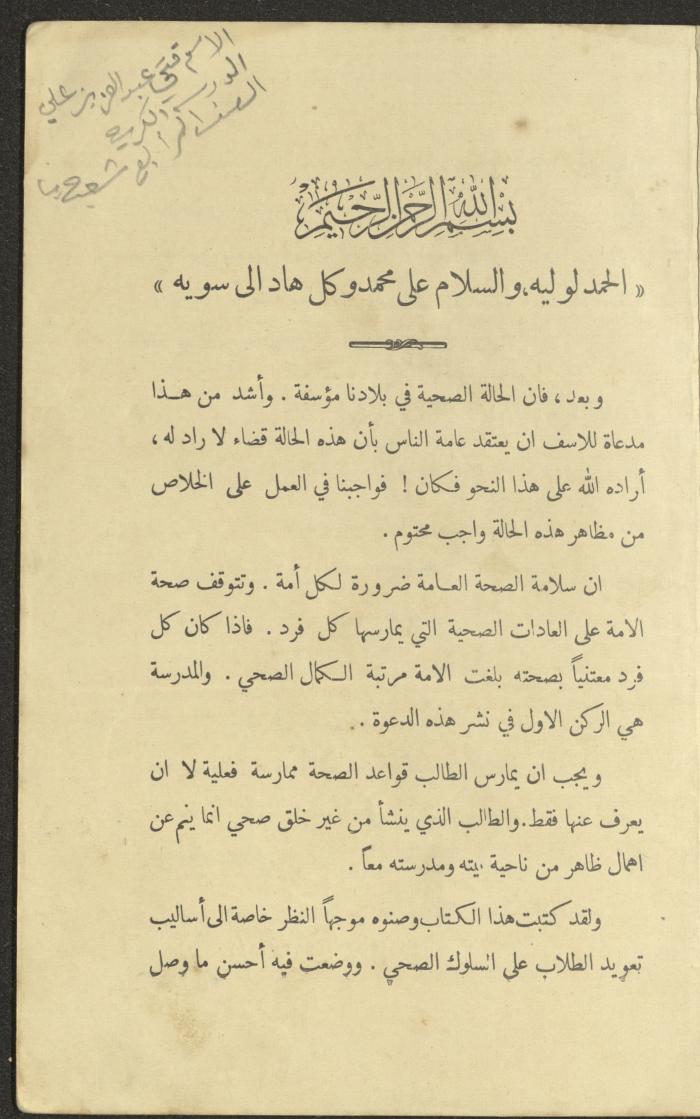 الاسم فتحي عبد العزيز علي
المدرسة
الصف الرابع شعبة
بسم الله الرحمن الرحيم
« الحمد لوليه، والسلام على محمد وكل هاد الى سويه »
وبعد ، فان الحالة الصحية في بلادنا مؤسفة . وأشد من هـذا
مدعاة للاسف ان يعتقد عامة الناس بأن هذه الحالة قضاء لا راد له ،
أراده الله على هذا النحو فـكان ! فواجبنا في العمل على الخلاص
من مظاهر هذه الحالة واجب محتوم .
ان سلامة الصحة العـامة ضرورة لـكل أمة . وتتوقف صحة
الامة على العادات الصحية التي يمارسها كل فرد . فاذا كان كل
فرد معتنياً بصحته بلغت الامة مرتبة الـكمال الصحي . والمدرسة
هي الركن الاول في نشر هذه الدعوة .
ويجب ان يمارس الطالب قواعد الصحة ممارسة فعلية لا ان
يعرف عنها فقط. والطالب الذي ينشأ من غير خلق صحي انما ينم عن
اهمال ظاهر من ناحية بيته ومدرسته معاً .
ولقد كتبت هذا الكتاب وصنوه موجهاً النظر خاصة الى أساليب
تعويد الطلاب على السلوك الصحي . ووضعت فيه أحسن ما وصل